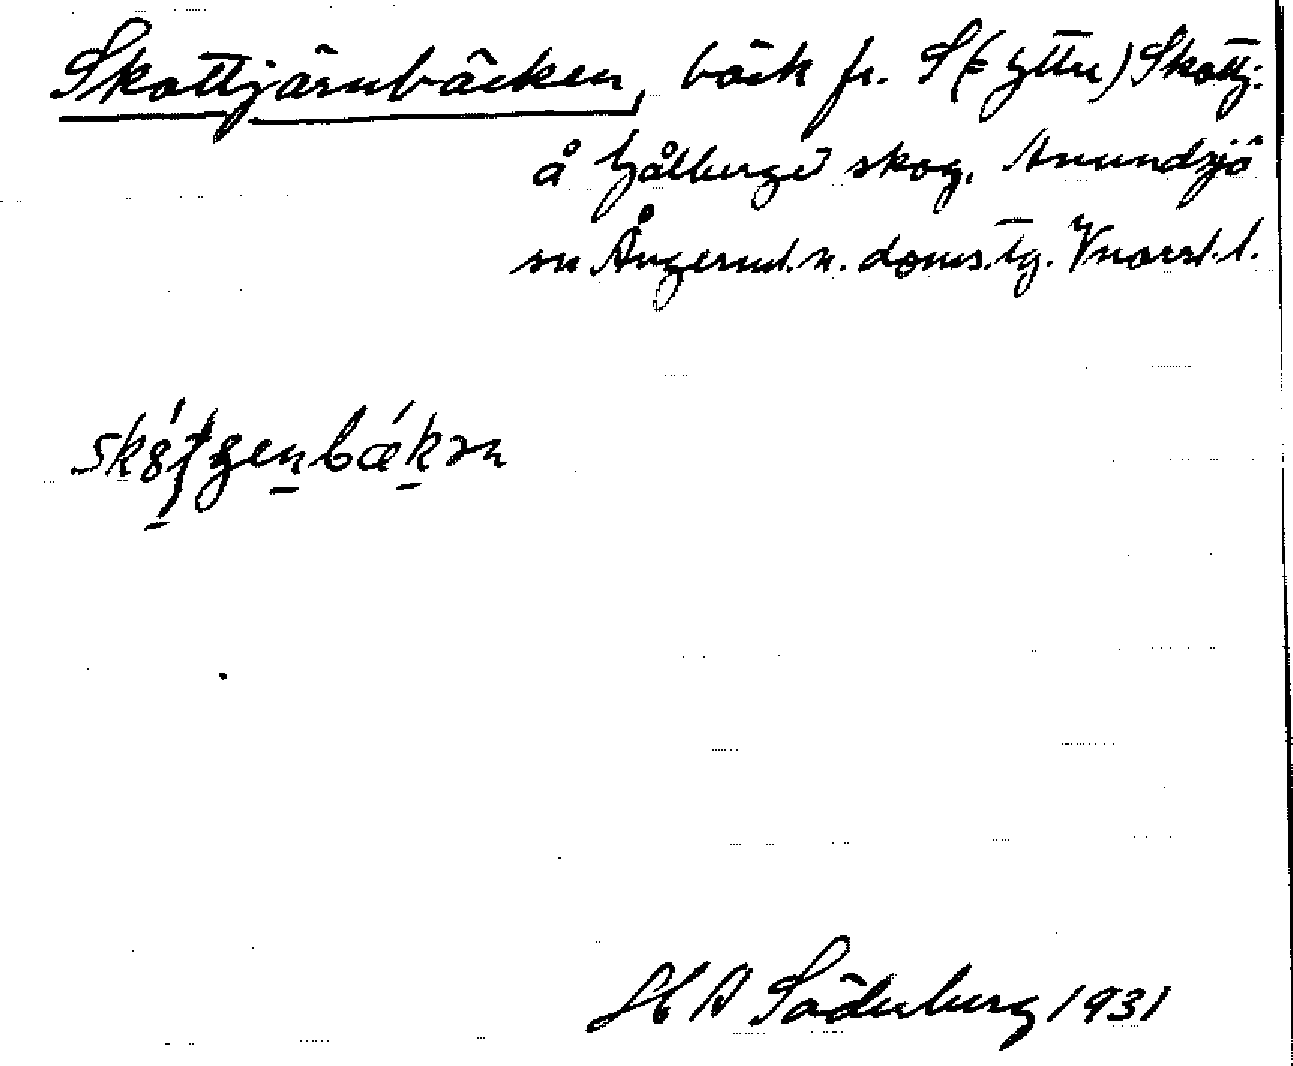 Skottjärnbäcken, bäck fr. S (= Yttre) Skottj:
å Gålberge skog, Anundsjö
sn Ångerml. n. doms.tg. Vnorrl. l.
H A Söderberg 1931